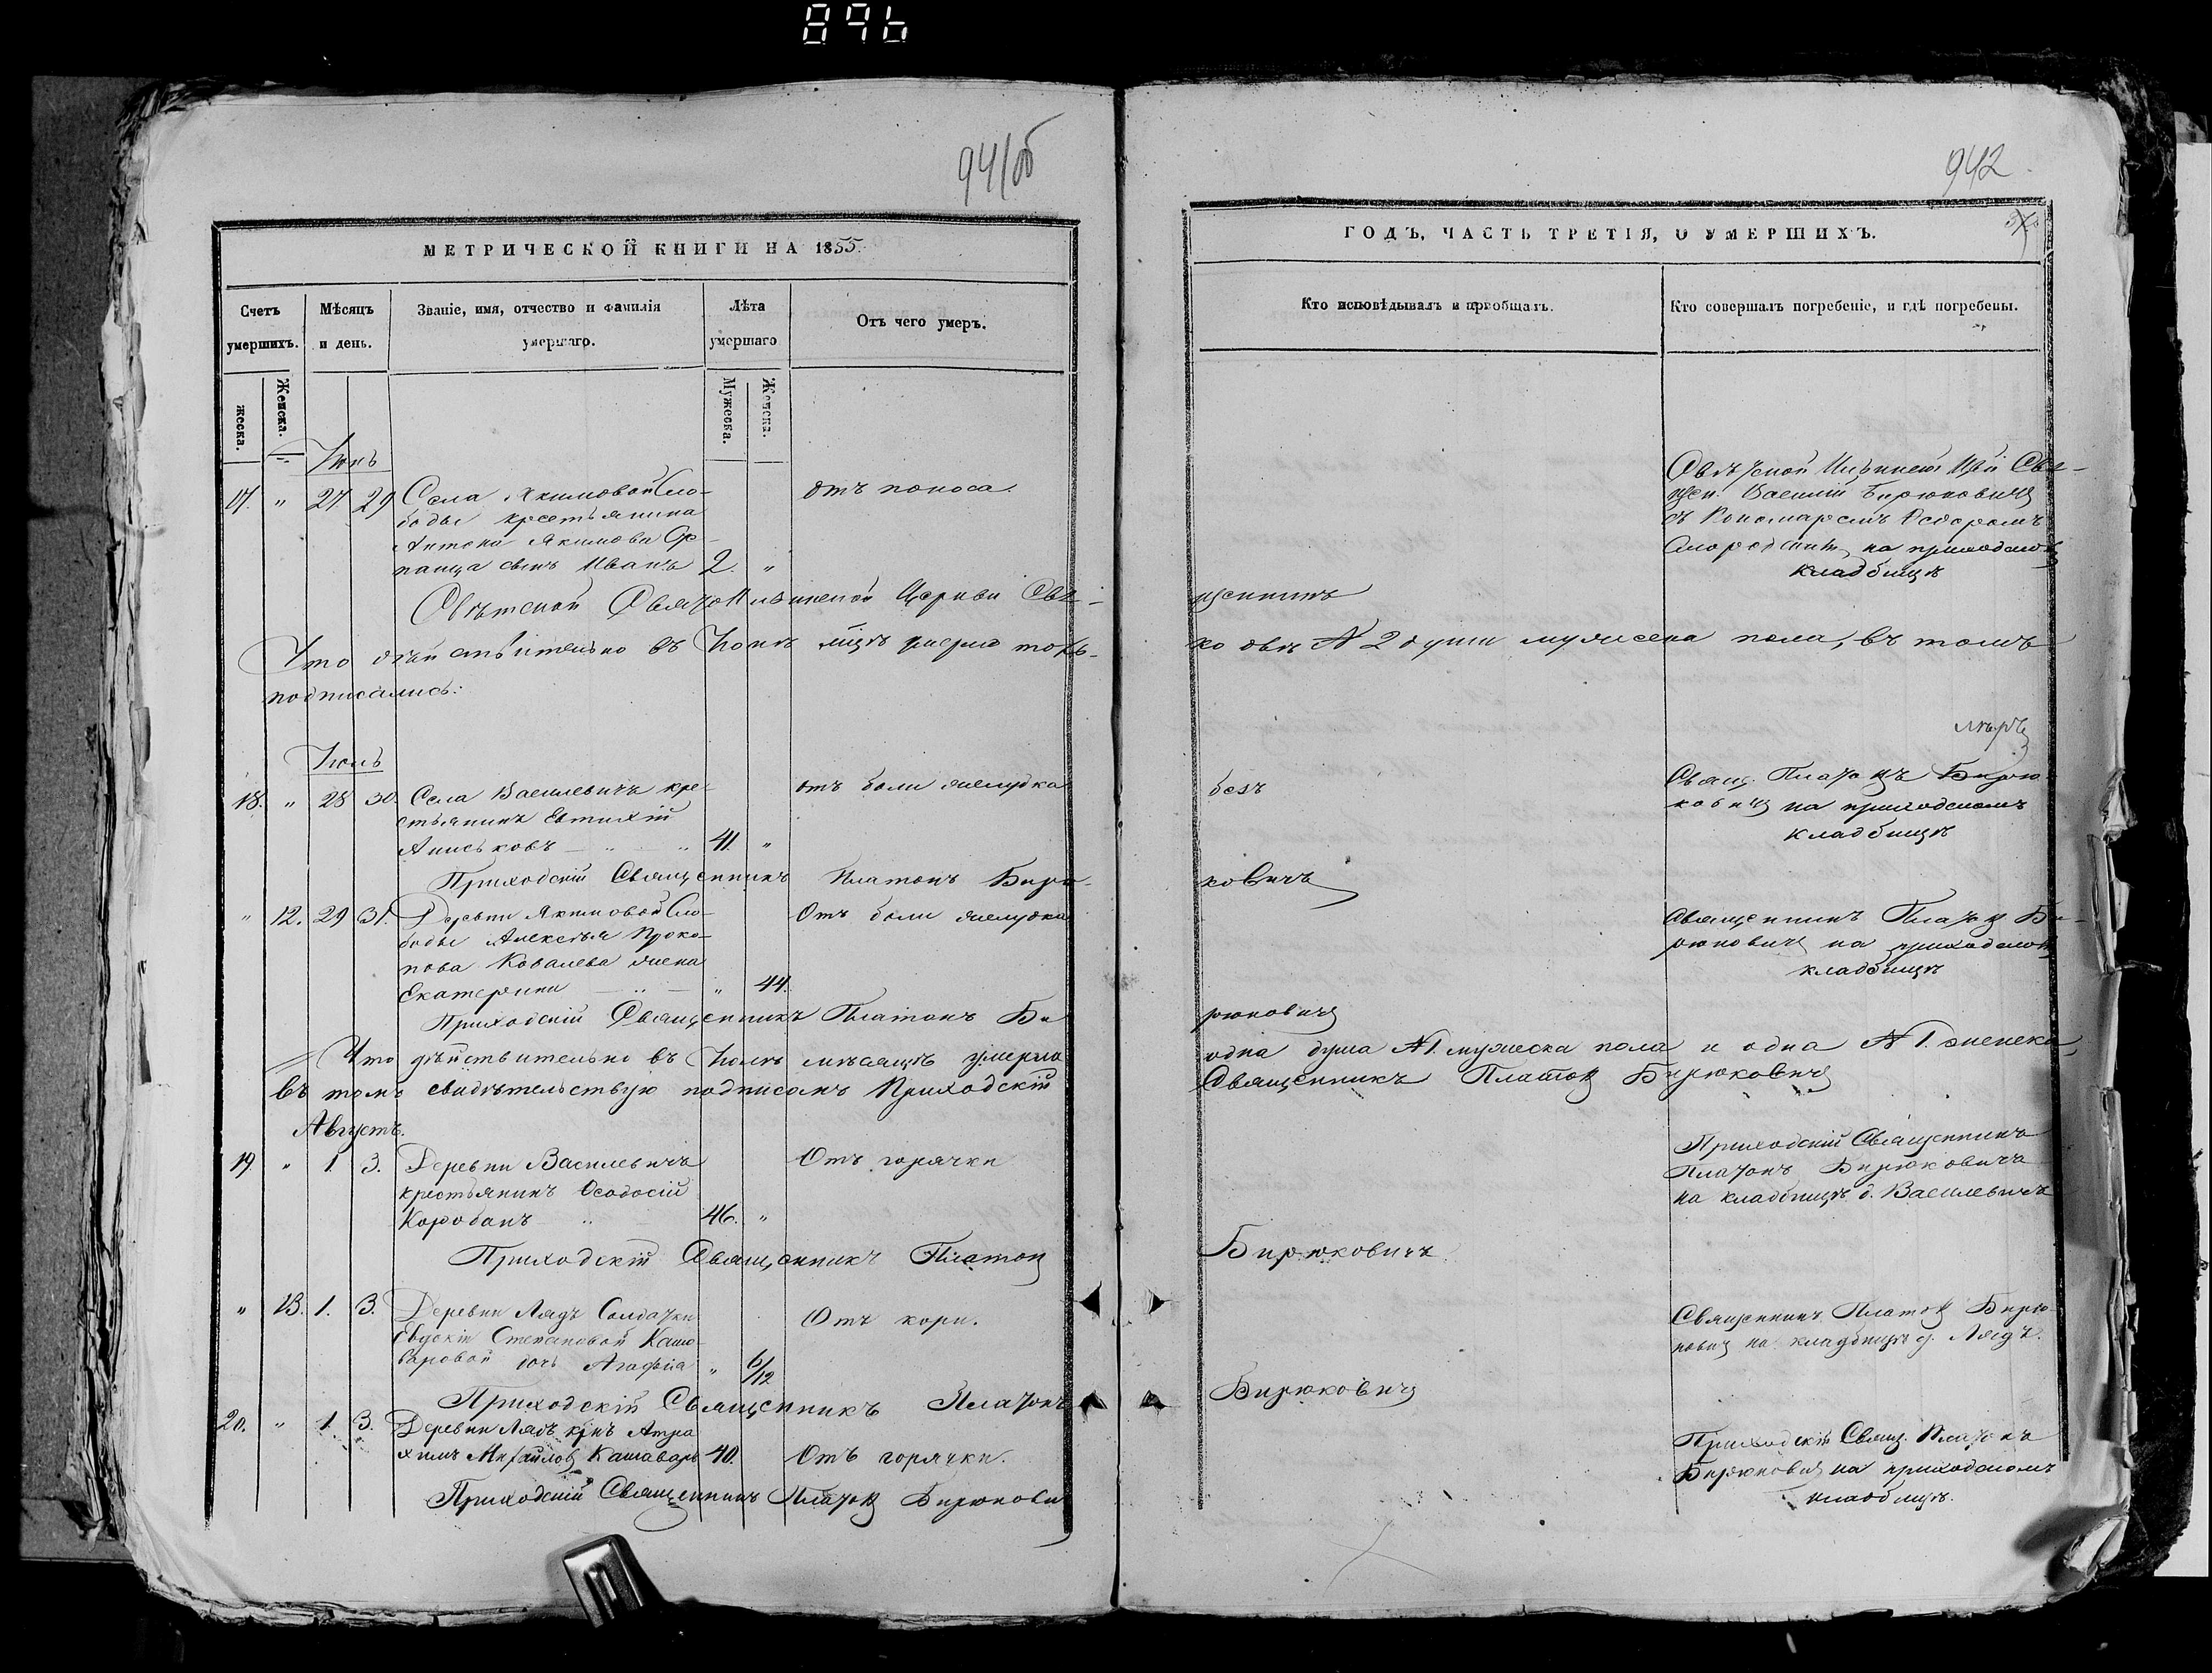 896
941об
МЕТРИЧЕСКОЙ КНИГИ НА 1855
Счетъ умершихъ.
Мѣсяцъ и день.
Званіе, имя, отчество и фамилія умершаго.
Лѣта умершаго
Отъ чего умеръ.
жеска.
Женска.
Мужеска.
Женска.
Іюнь
17. " 27 29 Села Якимовой Сло- отъ поноса.
боды крестьянина
Антона Якимова
сынъ Иванъ 2. "
Церкви Свя-
Что дѣйствительно въ Іюнѣ мцѣ умерло толь-
подписались:
Іюль
18. " 28 30. Села Василевичъ кре- отъ боли желудка
стьянинъ Евтихій
Аниськовъ 41. "
Приходскій Священникъ Платонъ Бирю-
" 12. 29 31. Деревни Якимовой Сло- Отъ боли желудка
боды Алексѣя Проко-
пова Ковалева жена
Екатерина " 44.
Приходскій Священникъ Платонъ Би
Что дѣйствительно въ Іюлѣ мѣсяцѣ умерло
въ томъ свидѣтельствую подписомъ Приходскій
Августъ.
19. " 1. 3. Деревни Василевичъ Отъ горячки
крестьянинъ Ѳеодосій
Коробанъ 46. "
Приходскій Священникъ Платон
" 13. 1. 3. Деревни Лядъ Солдатки Отъ кори.
Евдокіи Степановой Каша-
варовой дочь Агафія " 6/12
Приходскій Священникъ Платонъ
20. " 1. 3. Деревни Лядъ
Михайлов Кашаваръ 40. Отъ горячки.
Приходскій Священникъ Платон Бирюкови
942
ГОДЪ, ЧАСТЬ ТРЕТІЯ, О УМЕРШИХЪ.
Кто исповѣдывалъ и пріобщалъ.
Кто совершалъ погребеніе, и гдѣ погребены.
Свя-
щен. Василій Бирюкович
съ Пономаремъ Ѳедоромъ
на приходском
кладбищѣ
щенникъ
ко 2 души мужеска пола, въ томъ
безъ
Свящ. Платонъ Бирю-
кович на приходскомъ
кладбищѣ
ковичъ
Священникъ Платон Би-
рюкович на приходском
кладбищѣ
рюкович
одна душа № 1. мужеска пола и одна № 1. женска,
Священникъ Платон Бирюкович
Приходскій Священникъ
Платонъ Бирюковичъ
на кладбищѣ д. Василевичъ
Бирюковичъ
Священникъ Платон Бирю-
кович на кладбищѣ д. Лядъ.
Бирюкович
Приходскій Свящ. Платонъ
Бирюкович на приходскомъ
кладбищѣ.